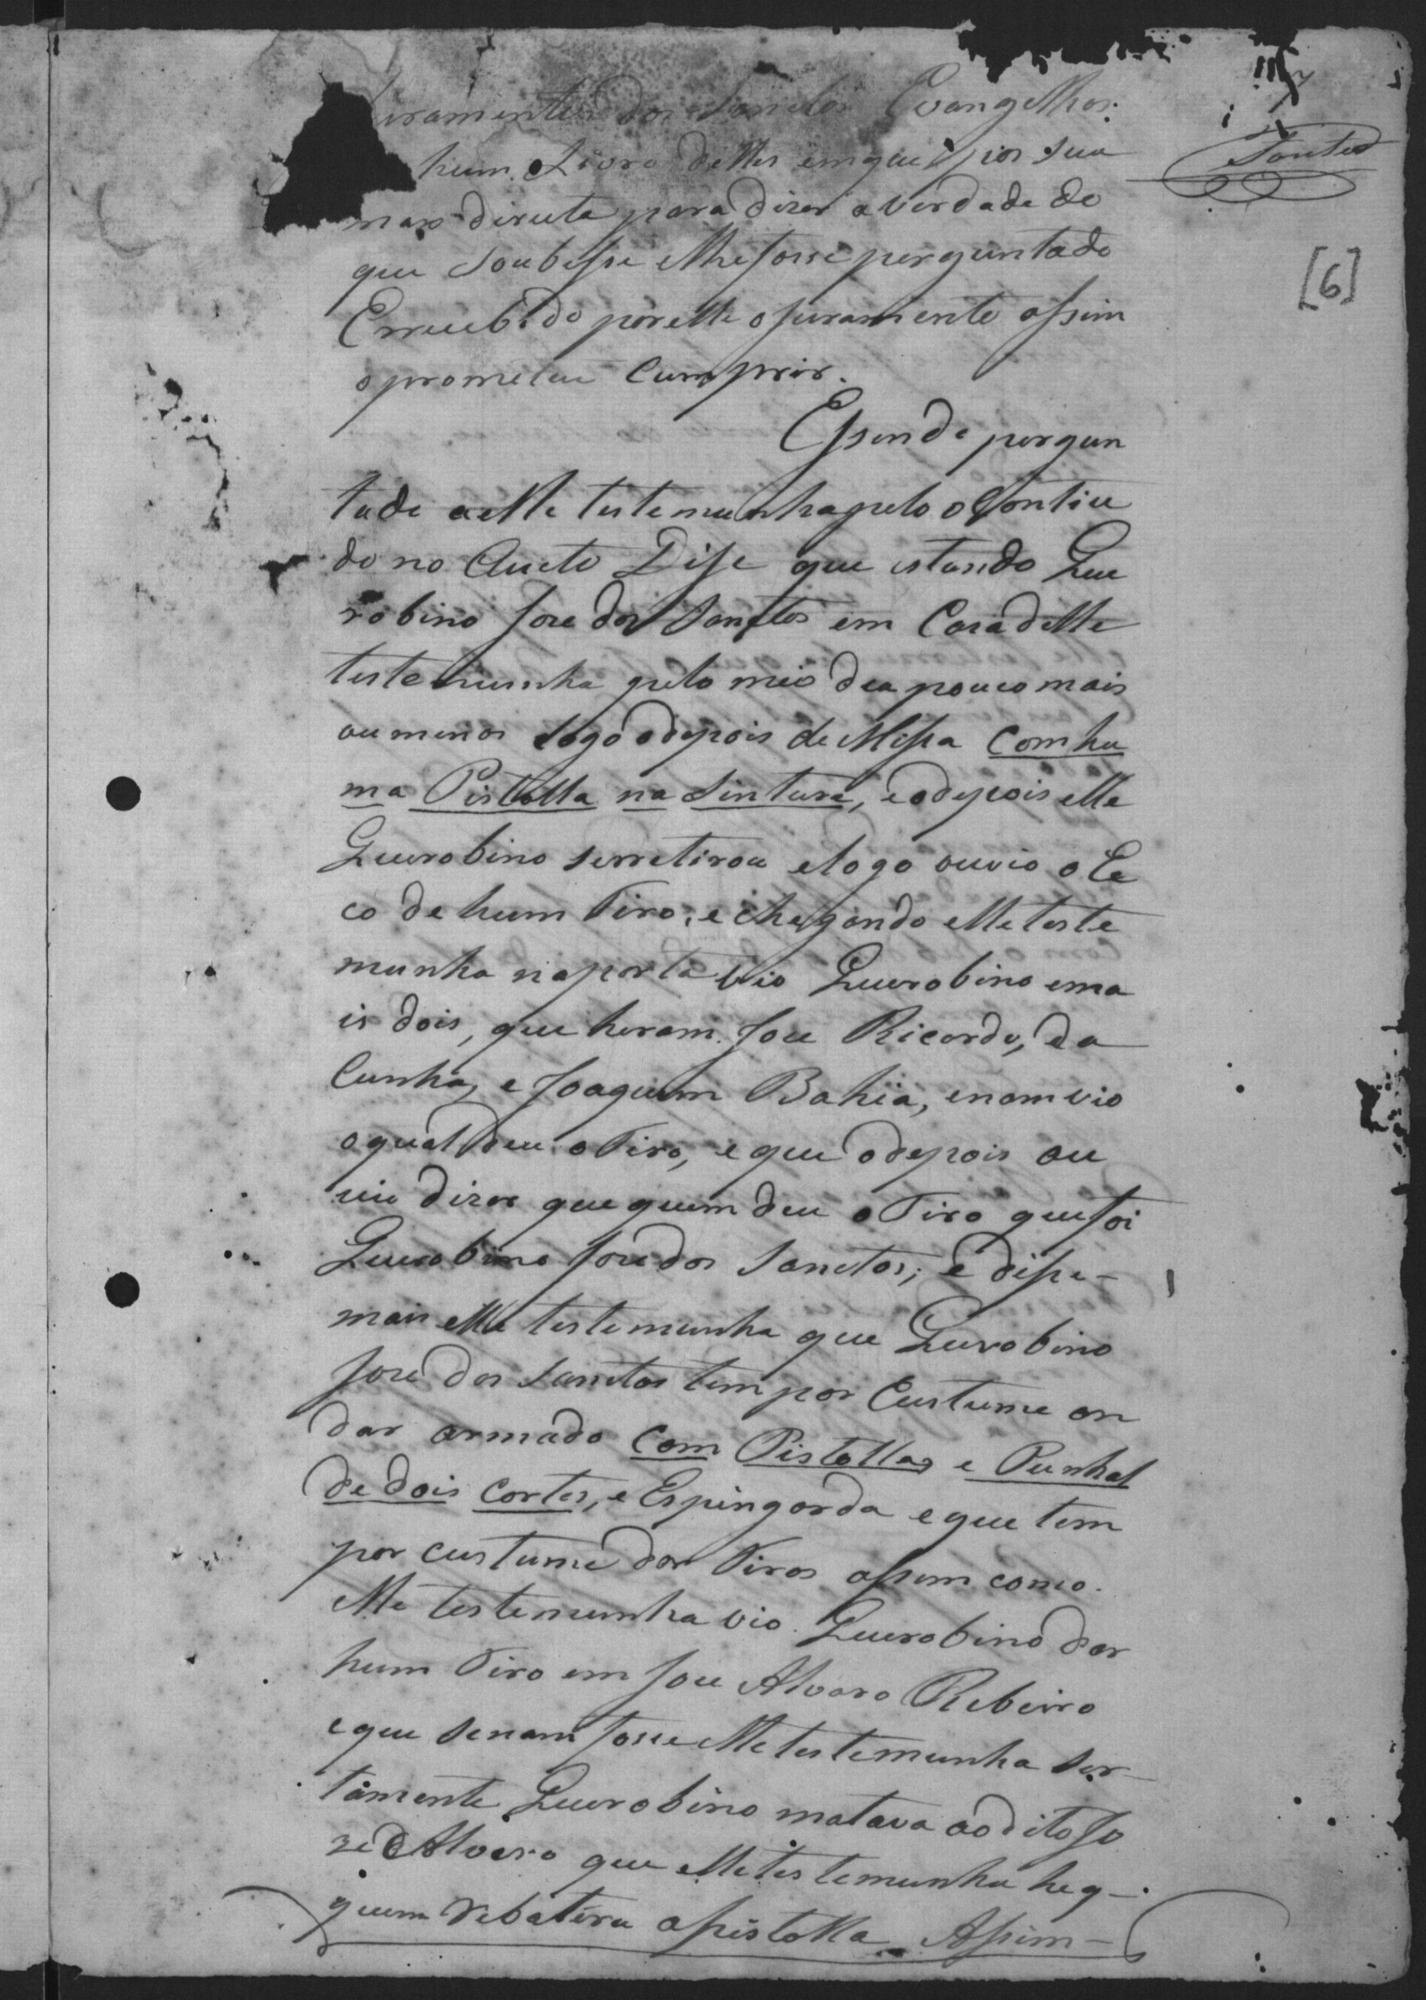 juramento dos Sanctos Evangelhos
hum Livro delles emque pos sua
mao direita para dizer a verdade do
que soubesse elhefosse perguntado
Erecebido porelle ojuramento assim
oprometeu Cumprir.
Esendo pergun
tado aelle testemunha pelo oContiu
do no Aucto Disse que estando Que
robino Joze dos Sanctos em Casa delle
testemunha pelo meio dea pouco mais
oumenos logo odepois de Missa Com hu
ma Pistolla na Sintura, eodepois elle
Querobino serretirou elogo ouvio oEe
co de hum Tiro, e chegando elle teste
munha naporta vio Querobino ema
is dois, que heram Joze Ricardo, da
Cunha, e Joaquim Bahia, enam vio
oqual deu oTiro, e que odepois ou
vio dizer que quem deu oTiro que foi
Querobino Joze dos Sanctos; e disse
mais elle testemunha que Querobino
Joze dos Sanctos tem por Custume an
dar armado com Pistollas e Punhal
de dois cortes, e Espingarda eque tem
por custume dar Tiros assim como
elle testemunha vio Querobino dar
hum Tiro em Joze Alvaro Ribeiro
eque senam fosse elle testemunha ser-
tamente Querobino matava aodito Jo
ze Alvaro que elle testemunha heq-
quem rebatera apistolla Assim
Santos
[6]